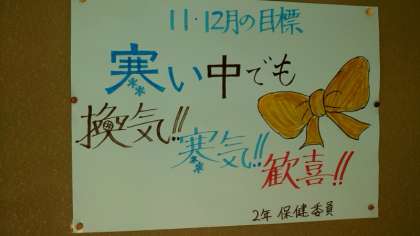 11・12月の目標
寒い中でも
換気!!
寒気!!
歓喜!!
2年 保健委員